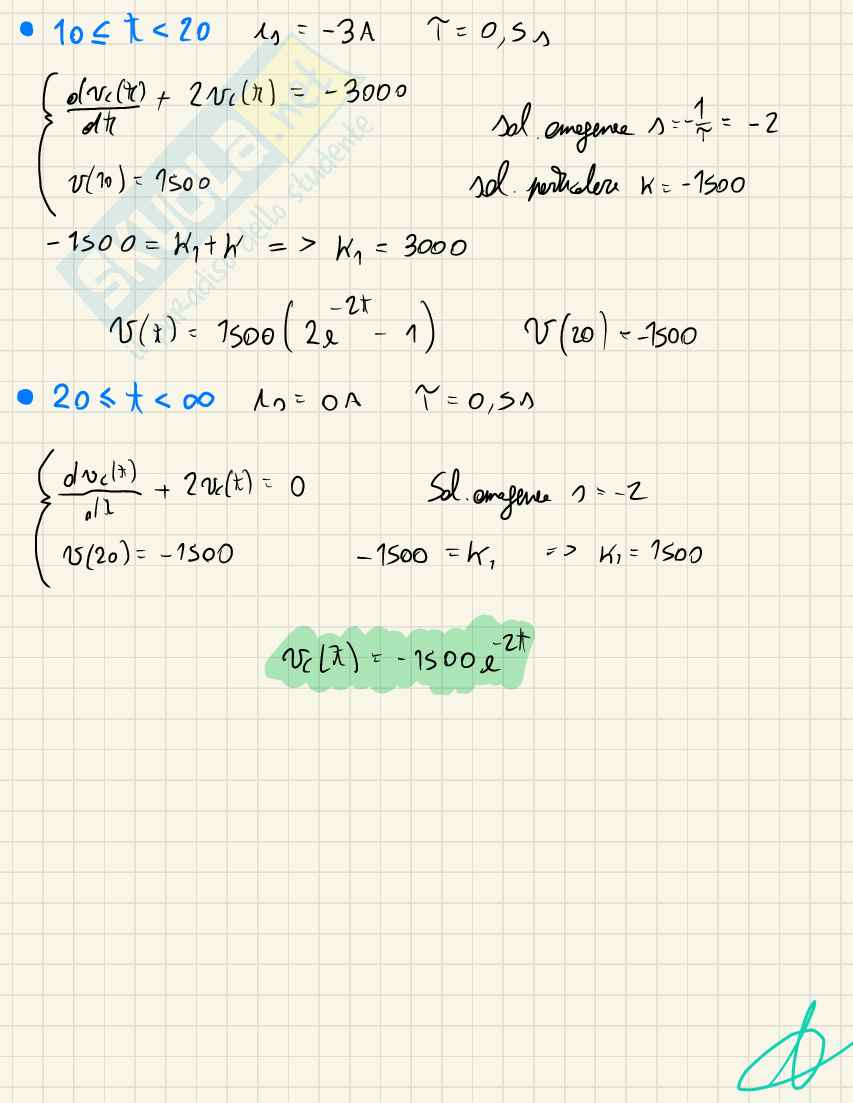 • 10 ≤ t < 20 is = -3A τ = 0,5 s
dvc(t)/dt + 2vc(t) = -3000
sol. omogenea s = -1/τ = -2
v(10) = 1500
sol. particolare K = -1500
-1500 = K1 + K => K1 = 3000
v(t) = 1500(2e^-2t - 1) v(20) = -1500
• 20 ≤ t < ∞ is = 0A τ = 0,5 s
dvc(t)/dt + 2vc(t) = 0 Sol. omogenea s = -2
v(20) = -1500 -1500 = K1 => K1 = 1500
vc(t) = -1500e^-2t
SKUOLA.net
il paradiso dello studente